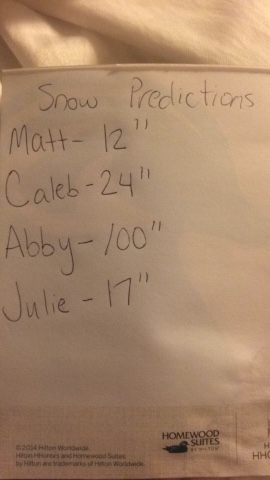 Snow Predictions
Matt - 12"
Caleb - 24"
Abby - 100"
Julie - 17"
HOMEWOOD
SUITES
BY HILTON
© 2014 Hilton Worldwide.
Hilton HHonors and Homewood Suites
by Hilton are trademarks of Hilton Worldwide.